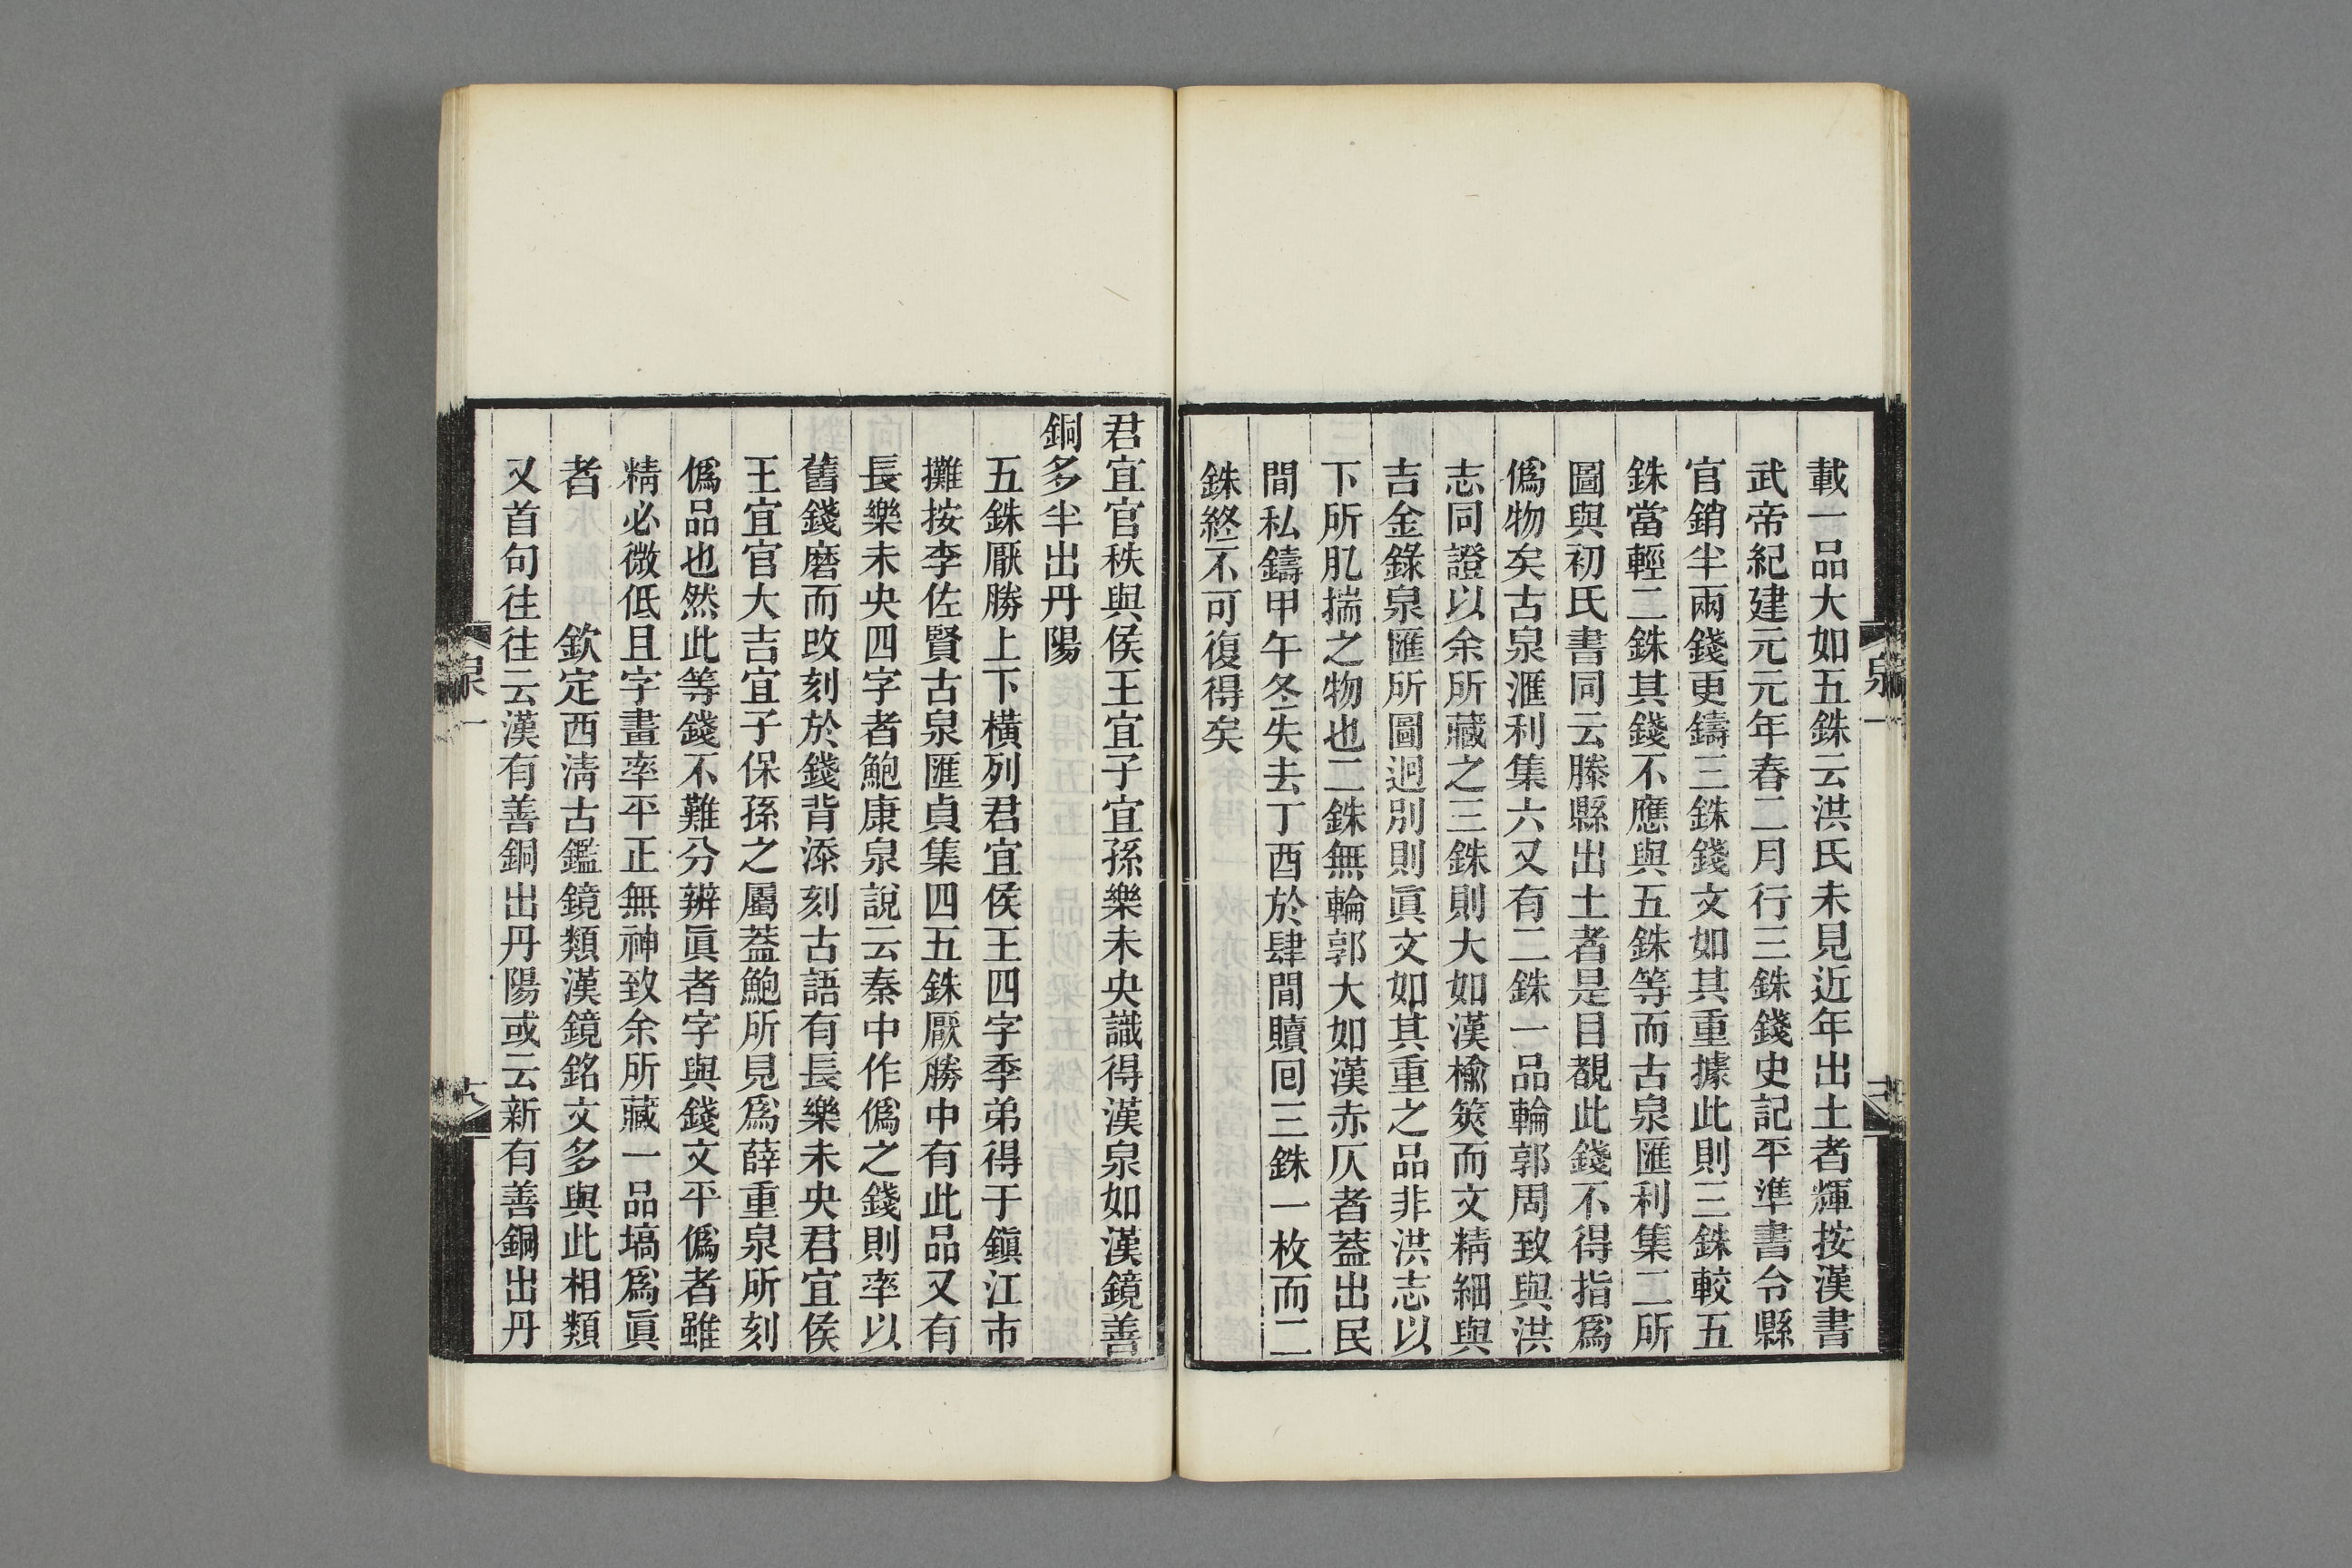 載一品大如五銖云洪氏未見近年出土者輝按漢書
武帝紀建元元年春二月行三銖錢史記平準書令縣
官銷半兩錢更鑄三銖錢文如其重據此則三銖較五
銖當輕二銖其錢不應與五銖等而古泉匯利集二所
圖與初氏書同云滕縣出土者是目覩此錢不得指爲
僞物矣古泉滙利集六又有二銖一品輪郭周致與洪
志同證以余所藏之三銖則大如漢楡莢而文精細與
吉金錄泉匯所圖迥別則眞文如其重之品非洪志以
下所肊揣之物也二銖無輪郭大如漢赤仄者葢出民
間私鑄甲午冬失去丁酉於肆間贖囘三銖一枚而二
銖終不可復得矣
君宜官秩與侯王宜子宜孫樂未央識得漢泉如漢鏡善
銅多半出丹陽
五銖厭勝上下橫列君宜侯王四字季弟得于鎭江市
攤按李佐賢古泉匯貞集四五銖厭勝中有此品又有
長樂未央四字者鮑康泉說云秦中作僞之錢則率以
舊錢磨而改刻於錢背添刻古語有長樂未央君宜侯
王宜官大吉宜子保孫之屬葢鮑所見爲薛重泉所刻
僞品也然此等錢不難分辨眞者字與錢文平僞者雖
精必微低且字畫率平正無神致余所藏一品塙爲眞
者　　欽定西淸古鑑鏡類漢鏡銘文多與此相類
又首句往往云漢有善銅出丹陽或云新有善銅出丹
泉一